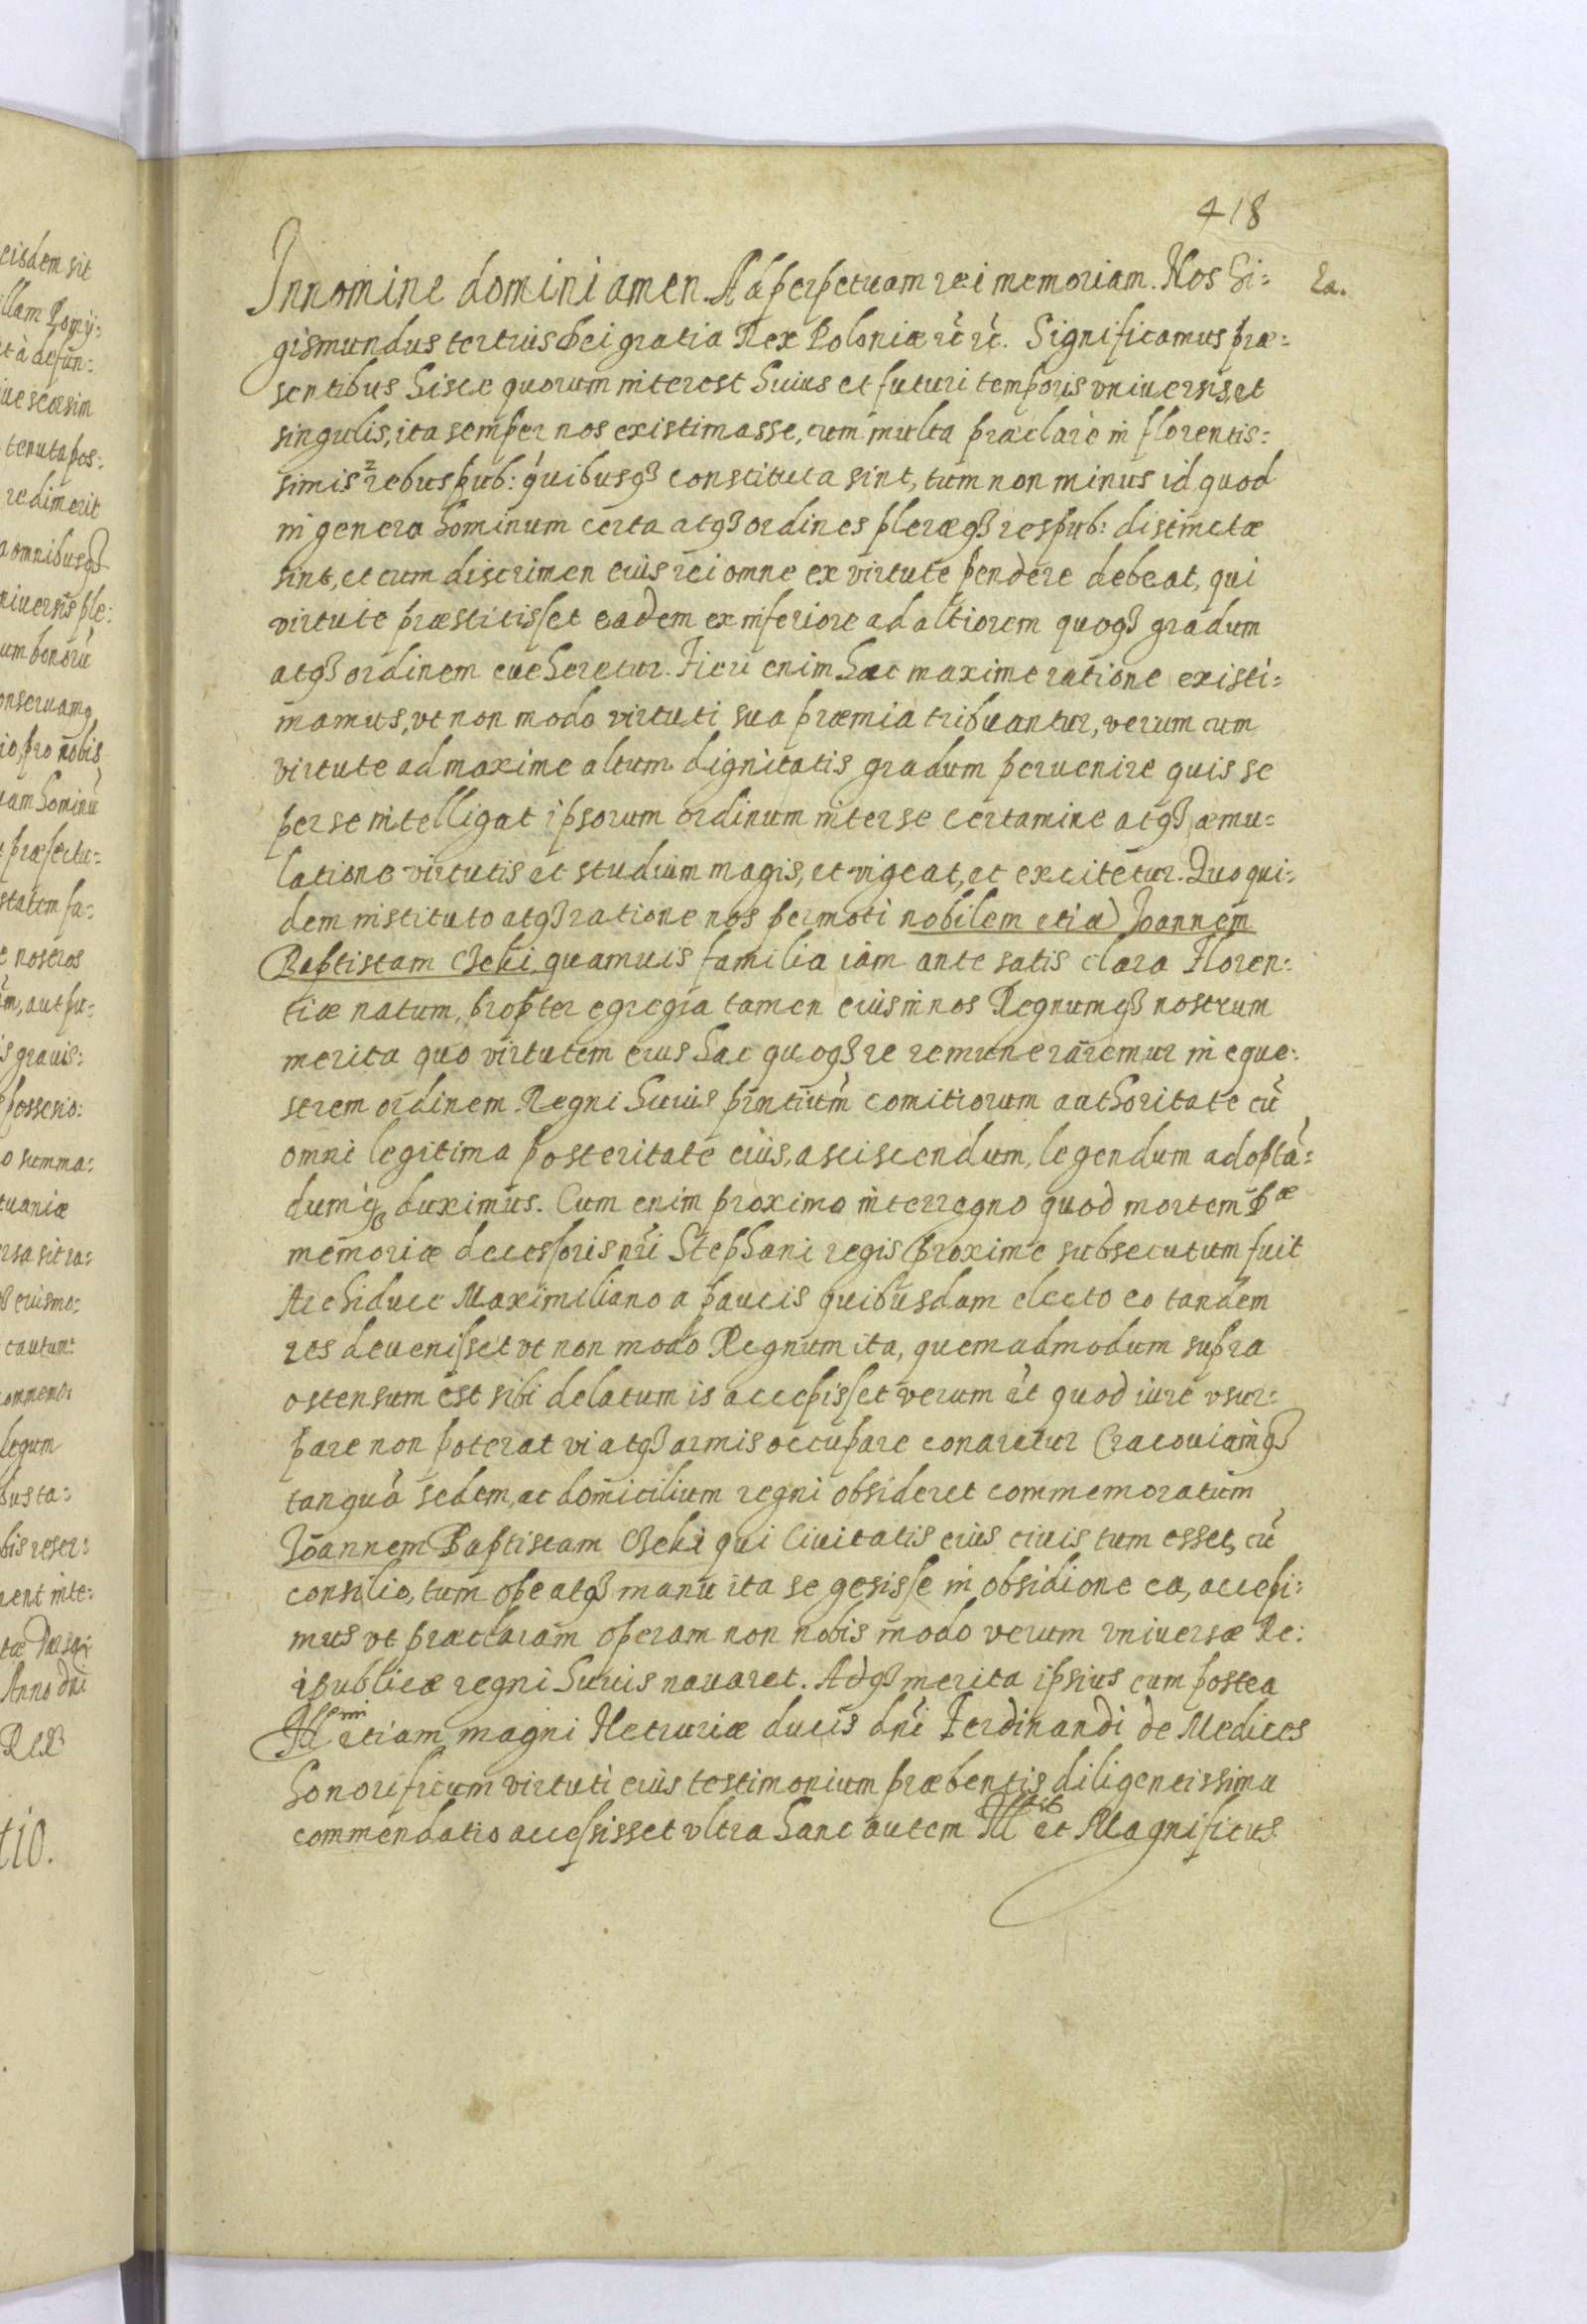 418
In nomine domini amen. Ad perpetuam rei memoriam. Nos Si= Ra.
gismundus tertius Dei gratia Rex Poloniæ etc̃ etc̃. Significamus præ=
sentibus hisce quorum interest huius et futuri temporis vniuersis, et
singulis, ita semper nos existimasse, cum multa præclare in florentis=
simis rebuspub: quibusq₃ constituta sint, tum non minus id quod
in genera hominum certa atq₃ ordines pleræq₃ respub: distinctæ
sint, et cum discrimen eius rei omne ex virtute pendere debeat, qui
virtute præstitisset eadem ex inferiore ad altiorem quoq₃ gradum
atq₃ ordinem eueheretur. Fieri enim hac maxime ratione existi=
mamus, vt non modo virtuti sua præmia tribuantur, verum cum
virtute ad maxime altum dignitatis gradum peruenire quis se
per se intelligat ipsorum ordinum inter se certamine atq₃ æmu=
latione virtutis et studium magis, et vigeat, et excitetur. Quo qui=
dem instituto atq₃ ratione nos permoti nobilem etiã Joannem
Baptistam Czeki quamuis familia iam ante satis clara Floren=
tiæ natum, propter egregia tamen eius in nos Regnumq₃ nostrum
merita quo virtutem eius hac quoq₃ re remuneraremur in eque=
strem ordinem Regni huius pñtium comitiorum authoritate cũ
omni legitima posteritate eius, asciscendum, legendum adoptã=
dumq₃ duximus. Cum enim proximo interregno quod mortem pæ
memoriæ decessoris nr̃i Stephani regis proxime subsecutum fuit
Archiduce Maximiliano a paucis quibusdam electo eo tandem
res deuenisset vt non modo Regnum ita, quemadmodum supra
ostensum est sibi delatum is accepisset verum et quod iure vsur=
pare non poterat vi atq₃ armis occupare conaretur Cracouiamq₃
tanquã sedem, ac domicilium regni obsideret commemoratum
Joannem Baptistam Czeki qui Ciuitatis eius ciuis tum esset, cũ
consilio, tum ope atq₃ manu ita se gesisse in obsidione ea, accepi=
mus vt præclaram operam non nobis modo verum vniuersæ Re=
ipublicæ regni huius nauaret. Adq₃ merita ipsius cum postea
Illmi etiam magni Hetruriæ ducis dñi Ferdinandi de Medices
honorificum virtuti eius testimonium præbentis diligentissima
commendatio accessisset vltra hanc autem Ill et Magnificus